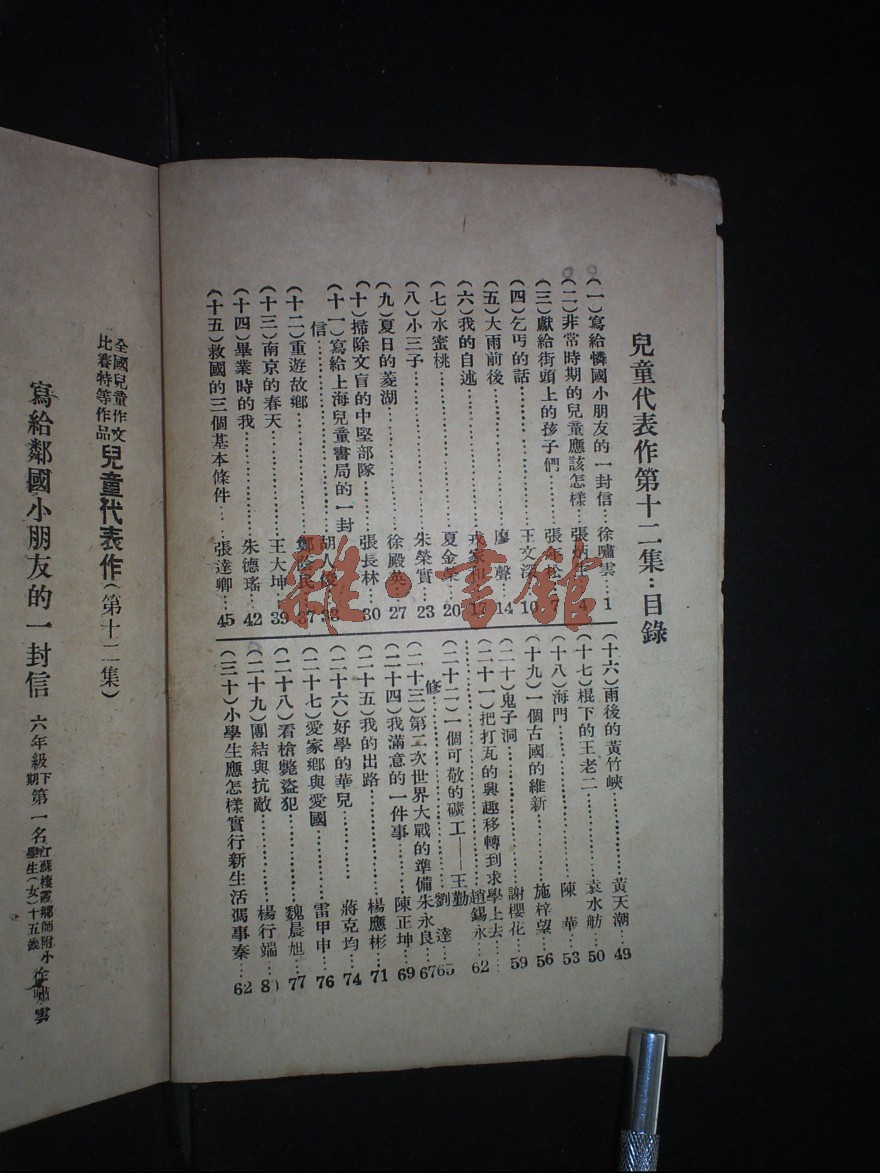 兒童代表作第十二集：目錄
（一）寫給憐國小朋友的一封信…徐嘯雲…1
（二）非常時期的兒童應該怎樣…張炳…4
（三）獻給街頭上的孩子們………張…松…7
（四）乞丐的話………王文深…10
（五）大雨前後………廖　聲…14
（六）我的自述………戎家和…17
（七）水蜜桃………夏金榮…20
（八）小三子………朱榮實…23
（九）夏日的菱湖………徐殿英…27
（十）掃除文盲的中堅部隊………張長林…30
（十一）寫給上海兒童書局的一封
信………胡人…33
（十二）重遊故鄉………鄭…民…37
（十三）南京的春天………王大坤…39
（十四）畢業時的我………朱德瑤…42
（十五）救國的三個基本條件……張達卿…45
（十六）雨後的黃竹峽………黃天潮…49
（十七）棍下的王老二………袁水舫…50
（十八）海門………陳　華…53
（十九）一個古國的維新………施梓望…56
（二十）鬼子洞………謝櫻花…59
（二十一）把打瓦的興趣移轉到求學上去…
………趙錫永…62
（二十二）一個可敬的礦工——王勤
修………劉　達…65
（二十三）第二次世界大戰的準備朱永良…67
（二十四）我滿意的一件事………陳正坤…69
（二十五）我的出路………楊應彬…71
（二十六）好學的華兒………蔣克均…74
（二十七）愛家鄉與愛國………雷甲申…76
（二十八）看槍斃盜犯………魏晨旭…77
（二十九）團結與抗敵………楊行端…8)
（三十）小學生應怎樣實行新生活馮事秦…62
全國兒童作文
比賽特等作品
兒童代表作（第十二集）
寫給鄰國小朋友的一封信
六年級下期第一名
江蘇棲霞鄉師附小
學生（女）十五歲
徐嘯雲
雜·書館